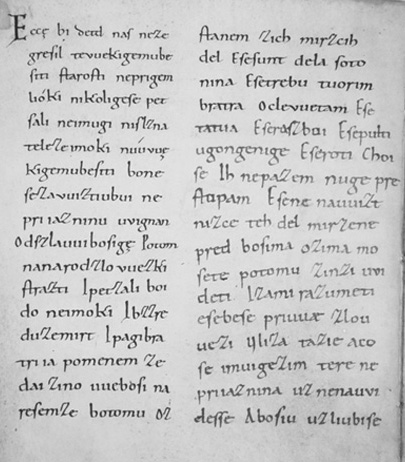 Eccę bi detd naſ neze
greſil tevuekigemube
ſiti ſtaroſti neprigem
lióki nikoligeſe pet
ſali neimugi niſlzna
telezeimoki nuúvue
kigemubeſiti bone
ſezavuiztiubui ne
priiazninu uvignan
Odſzlauuiboſigę Potom
nanarodzlovuezki
ſtrazti Ipetzali boi
do neimoki Ibzzre
duzemirt Ipagibra
triia pomenem ze
dai zino vuebóſi na
reſemze botomu Oz
ſtanem zich mirzcih
del Eſeſunt dela ſoto
nina Eſetrebu tuorim
bratra Oclevuetam Eſe
tatua Eſeraſzboi Eſepulti
ugongenige Eſeroti Choi
ſe Ih nepazem nuge pre
ſtopam Eſene nauuizt
nizce teh del mirzene
pred bozima ozima mo
ſete potomu zinzi uvi
deti Izami razumeti
eſebeſe priuuæ zlou
uezi Uliza tazie aco
ſe imuigezim tere ne
priiaznina uznenauvi
deſſe Aboſiu uzliubiſe